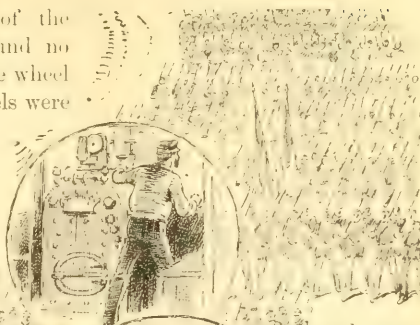 of the
und no
e wheel
els were